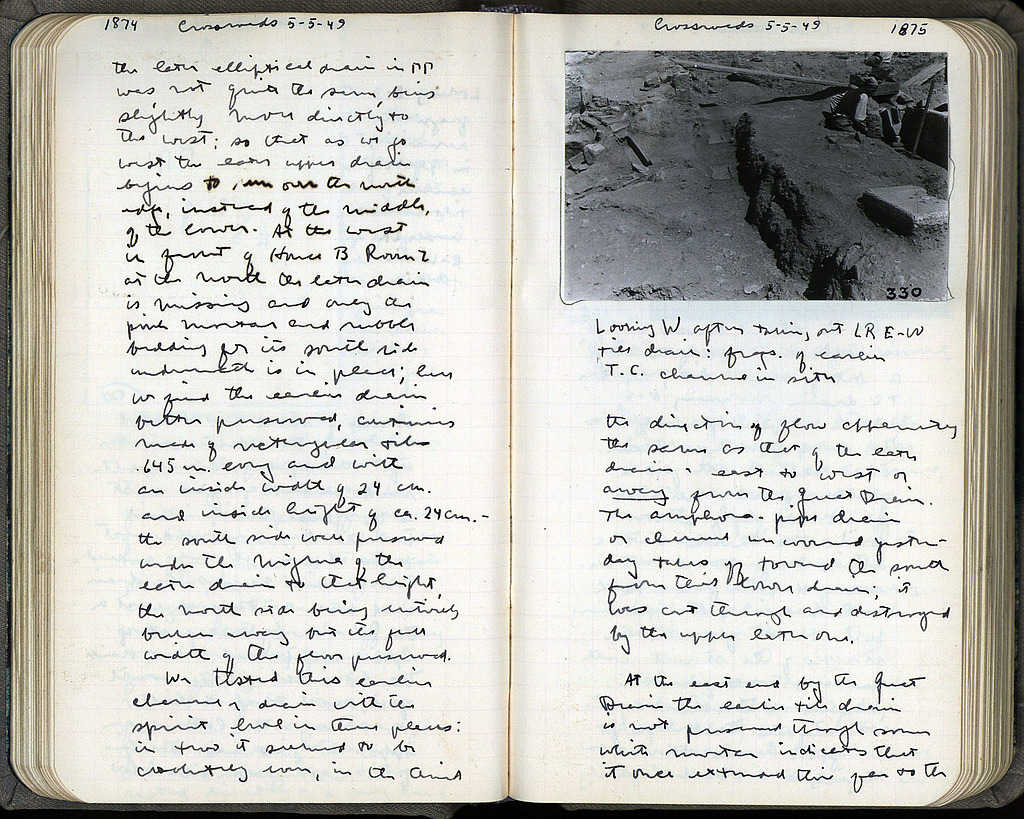 1874 Crossroads 5-5-49
the later elliptical drain in ΠΠ
was not quite the same, being
slightly more directly to
the west; so that as we go
west the later upper drain
begins to run over the north
edge, instead of the middle,
of the lower. At the west
in front of House B Room 2
at the north the later drain
is missing and only the
pink mortar and rubble
bedding for its south side
underneath is in place; here
we find the earlier drain
better preserved,
made of rectangular tiles
.645 m. long and with
an inside width of 24 cm.
and inside height of ca. 24 cm. -
the south side wall preserved
under the of the
later drain to that height,
the north side being entirely
broken away but its full
width of the floor preserved.
We tested this earlier
channel drain with the
spirit level in three places:
in two it seemed to be
absolutely even, in the third
Crossroads 5-5-49 1875
330
Looking W after taking out LR E-W
tiles drain: frags. of earlier
T.C. channel in situ
the direction of flow apparently
the same as that of the later
drain - east to west or
away from the Great Drain.
The amphora-pipe drain
or channel uncovered yester-
day takes off toward the south
from this lower drain; it
was cut through and destroyed
by the upper later one.
At the east end by the Great
Drain the earlier tile drain
is not preserved though some
white mortar indicates that
it once extended this far to the